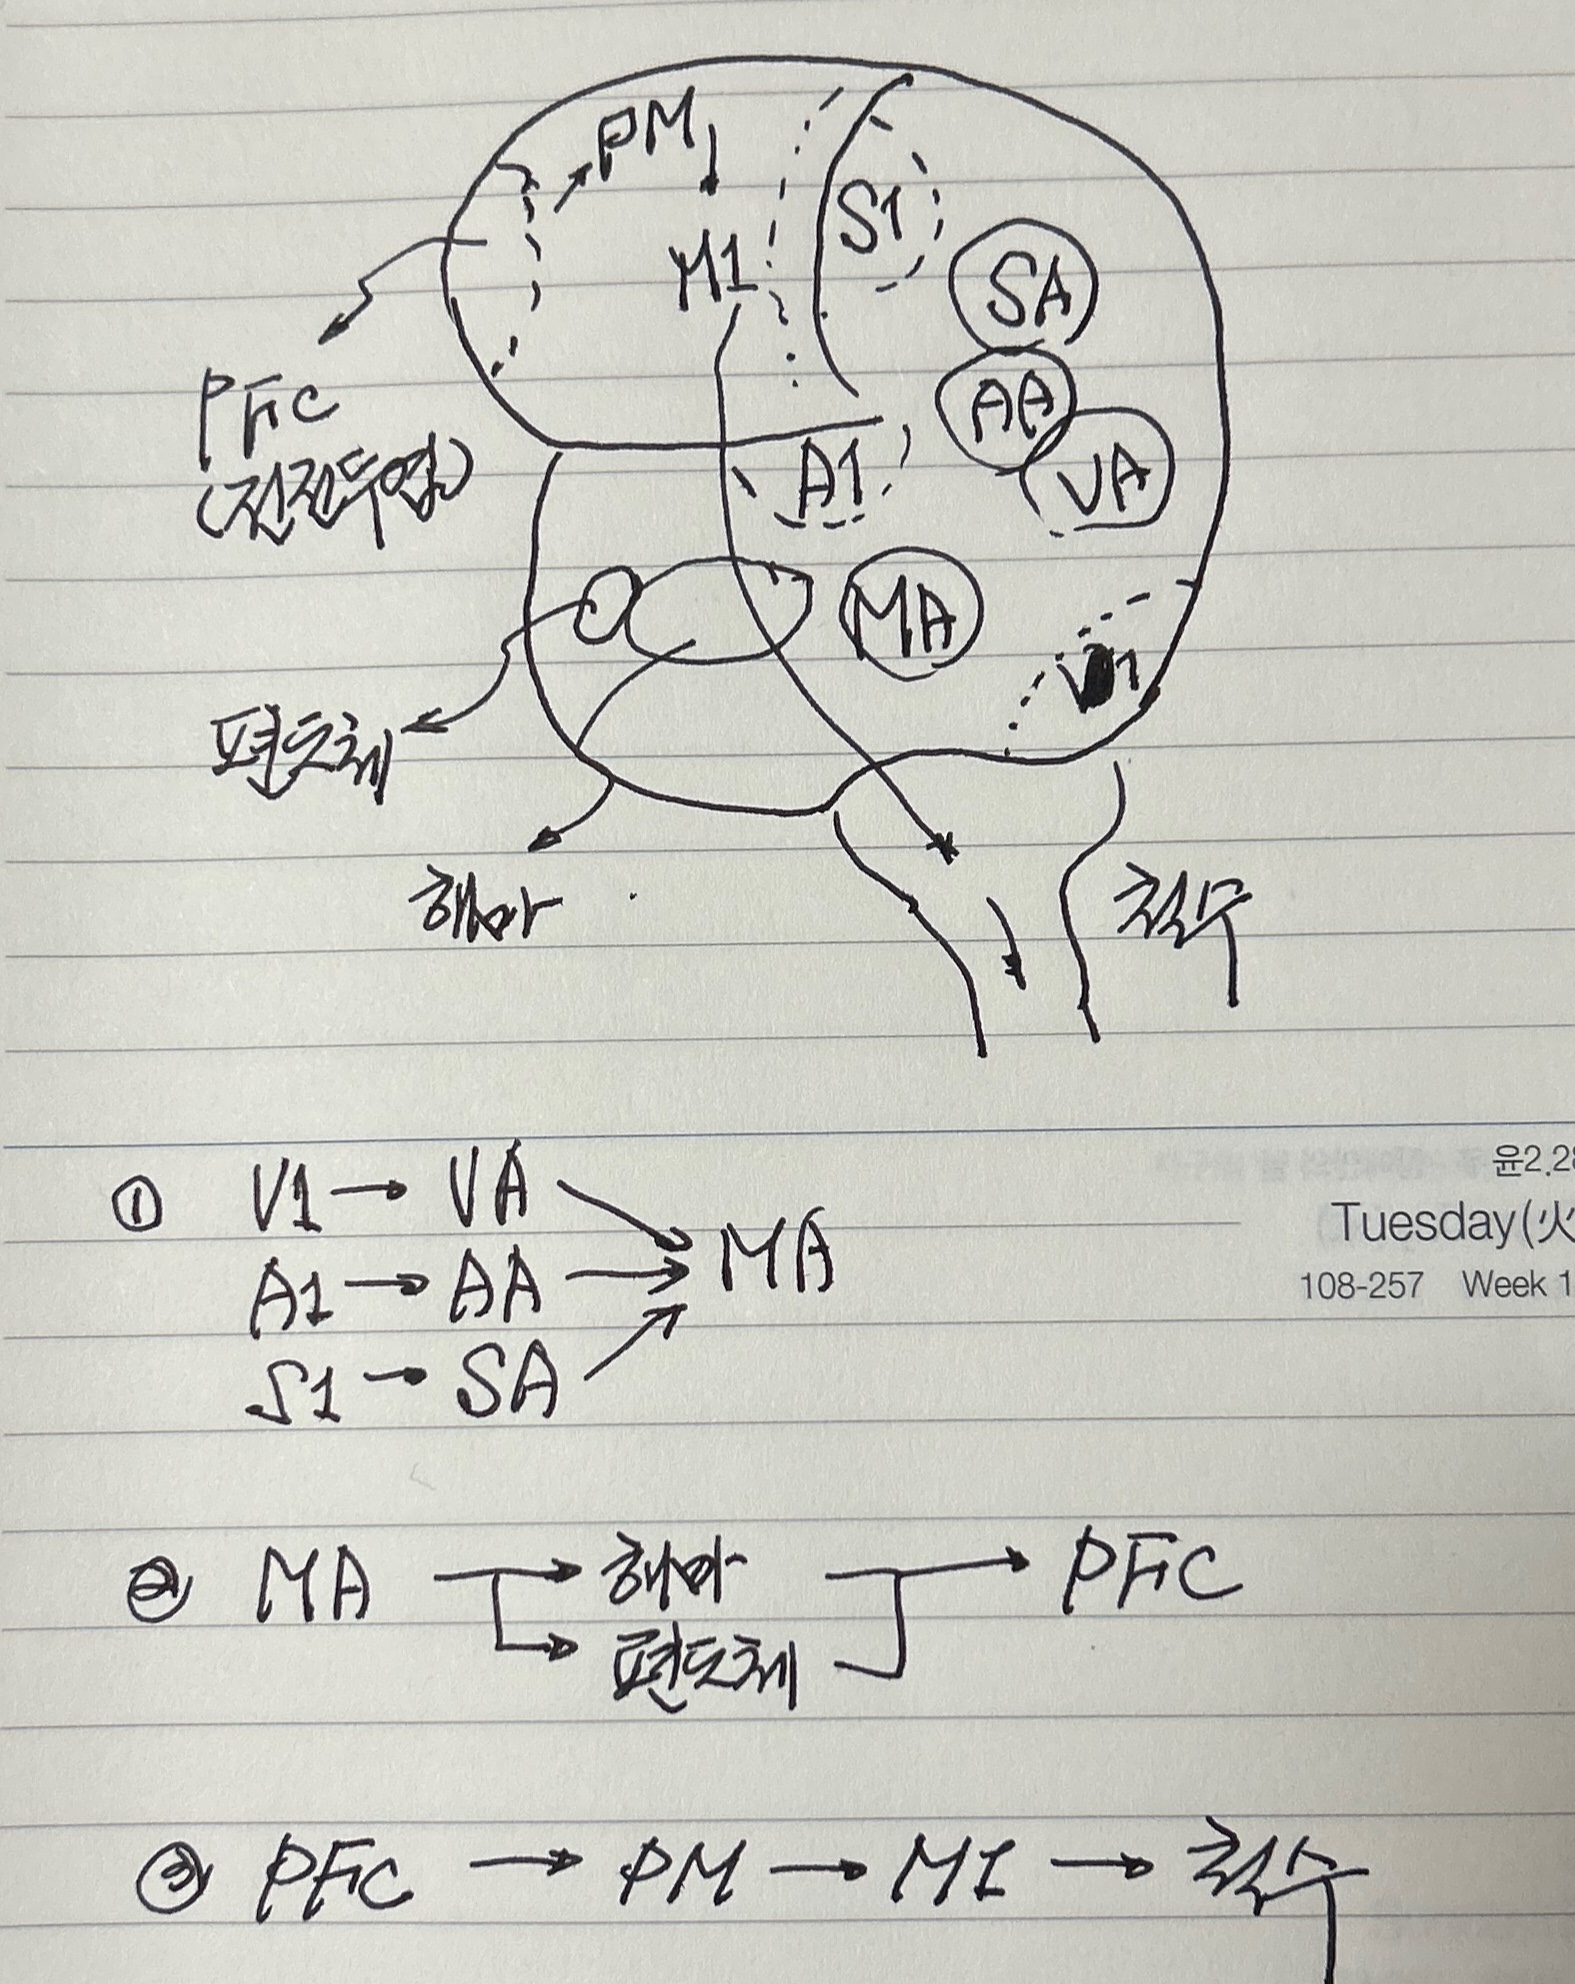 PM
S1
M1
SA
PFC
(전전두엽)
AA
A1
VA
MA
V1
편도체
해마
척수
윤2.2
Tuesday(火
108-257 Week 1
① V1 → VA
A1 → AA → MA
S1 → SA
② MA → 해마 → PFC
→ 편도체
③ PFC → PM → M1 → 척수